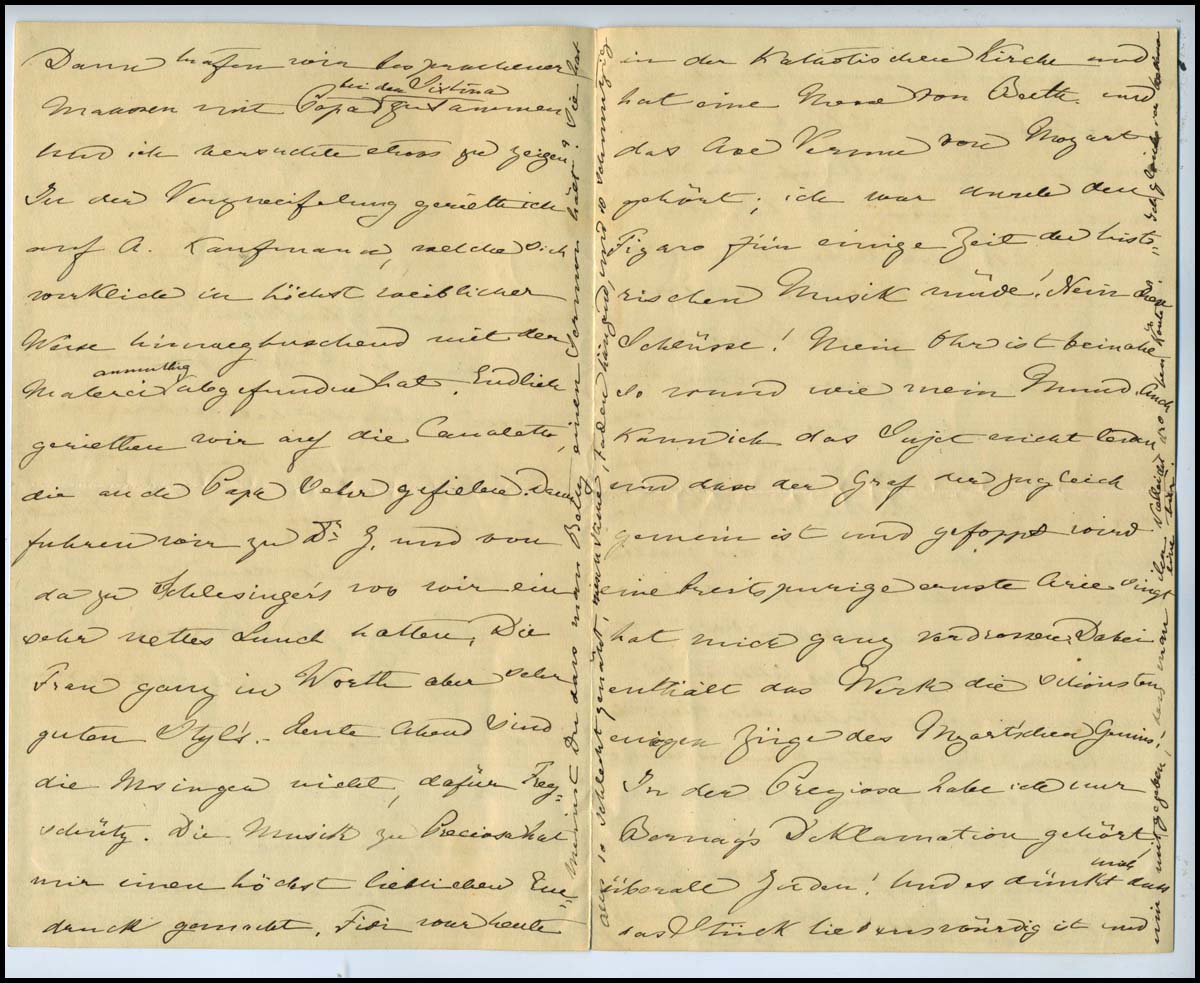 Dann trafen wir besprochener
Maassen mit Papa bei der Sixtina zusammen
und ich versuchte etwas zu zeigen.
In der Verzweifelung gerieth ich
auf A. Kaufmann, welche sich
wirklich in höchst weiblicher
Weise hinweghuschend mit der
Malerei anmuthig abgefunden hat. Endlich
geriethen wir auf die Canaletto,
die auch Papa sehr gefielen. Dann
fuhren wir zu Dr. J. und von
da zu Schlesinger's wo wir ein
sehr nettes Lunch hatten. Die
Frau ganz in Worth aber sehr
guten Styl's. - Heute Abend sind
die Msinger nicht, dafür Frey=
schütz. Die Musik zu Preciosa hat
mir einen höchst lieblichen Ein
druck gemacht. Fidi war heute
in der Katholischen Kirche und
hat eine Messe von Beeth. und
das Ave Verum von Mozart
gehört; ich war durch den
Figaro für einige Zeit der histo-
rischen Musik müde! Nein diese
Schlüsse! Mein Ohr ist beinahe
so rund wie mein Mund. Auch
kann ich das Sujet nicht leiden
und dass der Graf der zugleich
gemein ist und gefoppt wird
eine breitspurige ernste Arie singt
hat mich ganz verdrossen. Dabei
enthält das Werk die schönsten
einigen Züge des Mozart'schen Genius!
In der Preziosa habe ich nur
Declamation gehört,
überall Juden! Und es dünkt mich dass
das Stück liebenswürdig ist und
Meinst Du dass man Betty einen Sermon hält? Sie hat
alles so schlecht genäht, mein Name, Faden hängend, und so schmutzig
mir mitgegeben, dass man ihr Vielleicht